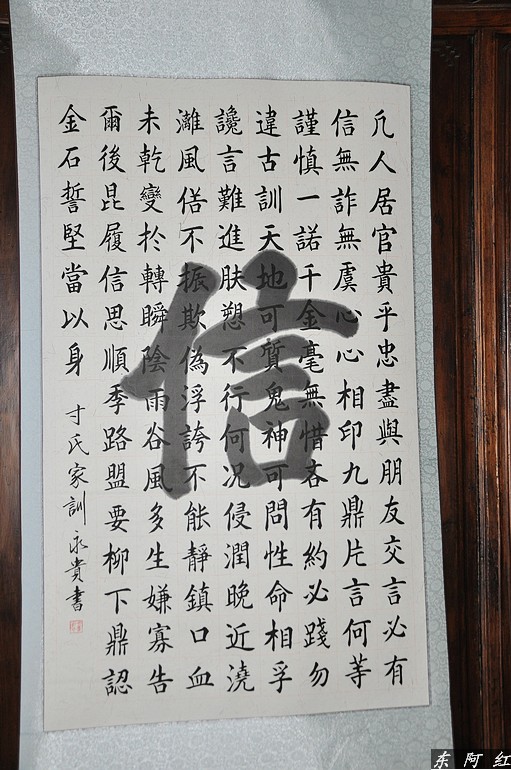 凢人居官貴乎忠盡與朋友交言必有
信無詐無虞心心相印九鼎片言何等
謹慎一諾千金毫無惜吝有約必踐勿
違古訓天地可質鬼神可問性命相孚
讒言難進肤愬不行何况侵潤晚近澆
灕風俗不振欺偽浮誇不能靜鎮口血
未乾變於轉瞬陰雨谷風多生嫌寡告
爾後昆履信思順季路盟要柳下鼎認
金石誓堅當以身
寸氏家訓 永貴書
信
东阿红